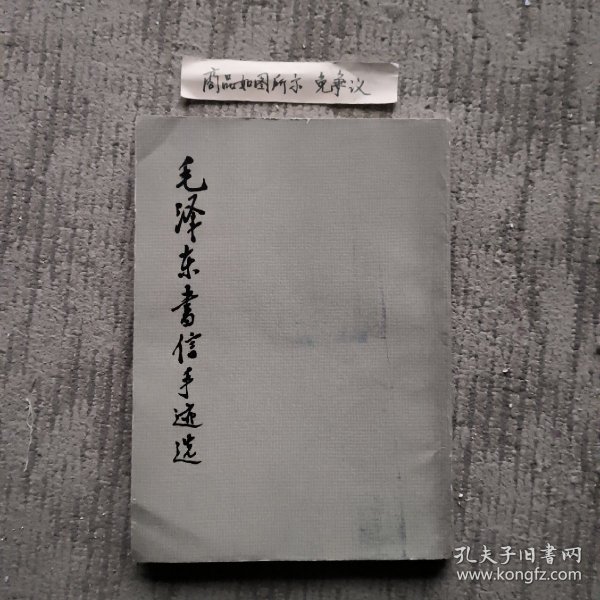 商品如图所示 免争议
毛泽东書信手迹选
孔夫子旧书网
www.kongfz.com